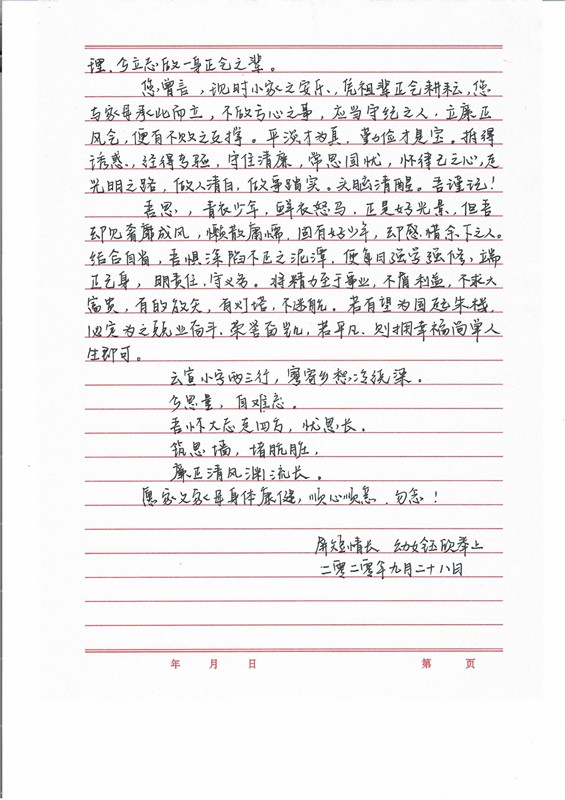 理，今立志做一身正气之辈。
您曾言，现时小家之安乐，凭祖辈正气耕耘，您
与家母承此而立，不做亏心之事，应当守纪之人，立廉正
风气，便有不败之支撑。平淡才为真，勤俭才是宝。拒得
诱惑，经得考验，守住清廉，常思国忧，怀律己之心，走
光明之路，做人清白，做事踏实。头脑清醒。吾谨记！
吾思，青衣少年，鲜衣怒马，正是好光景，但吾
却见奢靡成风，懒散庸懦，固有好少年，却感惜余下之人。
结合自省，吾惧深陷不正之泥潭，便每日强学强修，端
正己身，明责任，守义务。将精力至于事业，不肖利益，不求大
富贵，有的放矢，有灯塔，不迷航。若有望为国起朱栈，
必定为之兢业奋斗，荣誉奋凯，若平凡，则拥幸福简单人
生即可。
云宣小字两三行，寥寄乡愁冷纸梁。
今思量，自难忘。
吾怀大志走四方，忧思长。
筑思墙，堵肮脏，
廉正清风渊流长。
愿家父家母身体康健，顺心顺意，勿念！
屏短情长 幼女钰欣奉上
二零二零年九月二十八日
年 月 日 第 页